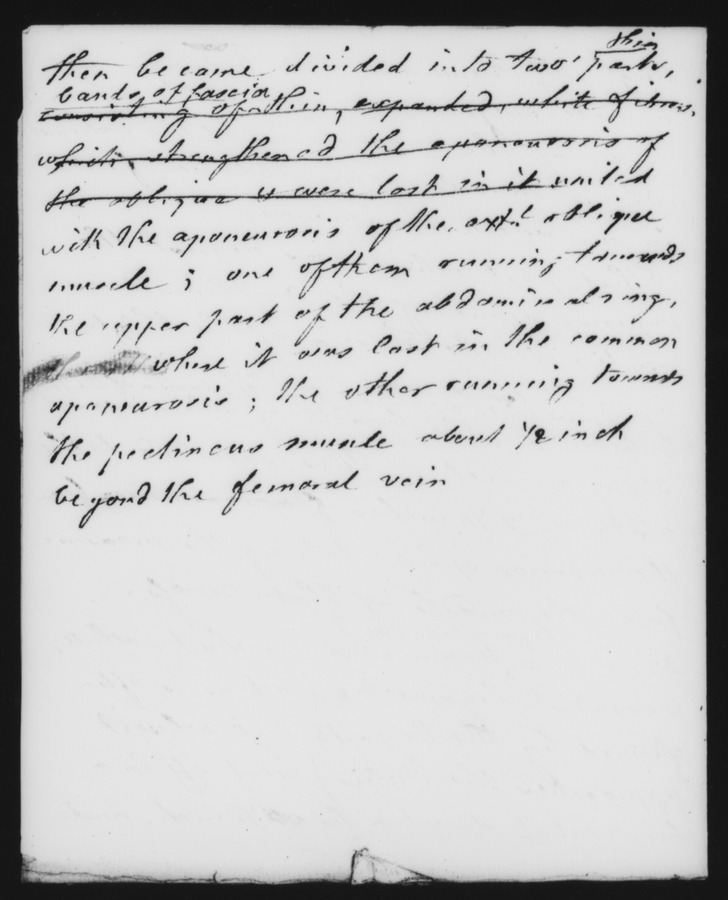 thin
then became divided into two parts,
bands of fascia
consisting of thin, expanded, white fibres,
which strengthened the aponeurosis of
the oblique & were lost in it united
with the aponeurosis of the extl oblique
muscle; one of them running towards
the upper part of the abdominal ring,
where it was lost in the common
aponeurosis; the other running towards
the pectineus muscle about 1/2 inch
beyond the femoral vein